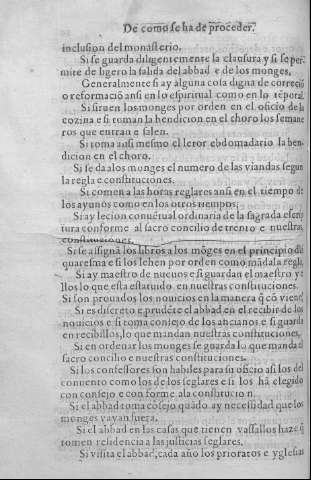 De como se ha de proceder.
inclusion del monasterio.
Si se guarda diligentemente la clausura y si se per
mite de ligero la salida del abbad e de los monges.
Generalmente si ay alguna cosa digna de correcio
o reformació ansi en lo espiritual como en lo téporal
Si siruen los monges por orden en el oficio de la
cozina e si toman la bendicion en el choro los semane
ros que entran e salen.
Si toma ansi mesmo el letor ebdomadario la ben
dicion en el choro.
Si se da a los monges el numero de las viandas segun
la regla e constituciones.
Si comen a las horas reglares ansi en el tiempo de
los ayunos como en los otros tiempos.
Si ay lecion conuétual ordinaria de la sagrada escri
tura conforme al sacro concilio de trento e nuestras
constituciones.
Si se assignã los libros a los mõges en el principio de
quaresma e si los leben por orden como mãda la regla.
Si ay maestro de nueuos e si guardan el maestro y e
llos lo que esta estatuido en nuestras constituciones.
Si son prouados los nouicios en la manera q̃ cõ viene
Si es discreto e prudéte el abbad en el recibir de los
nouicios e si toma consejo de los ancianos e si guarda
en recibillos, lo que mandan nuestras constituciones.
Si en ordenar los monges se guarda lo que manda el
sacro concilio e nuestras constituciones.
Si los confessores son habiles para su oficio asi los del
conuento como los de los seglares e si los hà elegido
con consejo e con forme a la constitucion.
Si el abbad toma cõsejo quãdo ay necesidad que los
monges vayan fuera.
Si el abbad en las casas que tienen vassallos haze q̃
tomen residencia a las justicias seglares.
Si visita el abbad, cada año los prioratos e yglesias